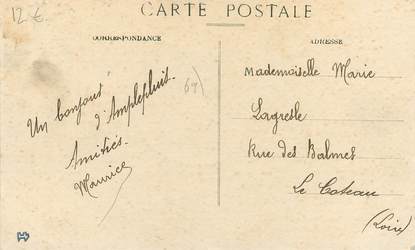 12 €
CARTE POSTALE
CORRESPONDANCE
ADRESSE
Un bonjour
d'Amplepluit.
Amitiés.
Maurice
69)
Mademoiselle Marie
Lagresle
Rue des Balmes
Le Coteau
(Loire)